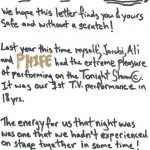 We hope this letter finds you & yours
Safe and without a scratch!
Last year this time myself, Jarobi, Ali
and PHIFE had the extreme pleasure
of performing on the Tonight Show.
It was our 1st T.V. performance in
18 yrs.
The energy for us that night was
was one that we hadn't experienced
on stage together in some time!